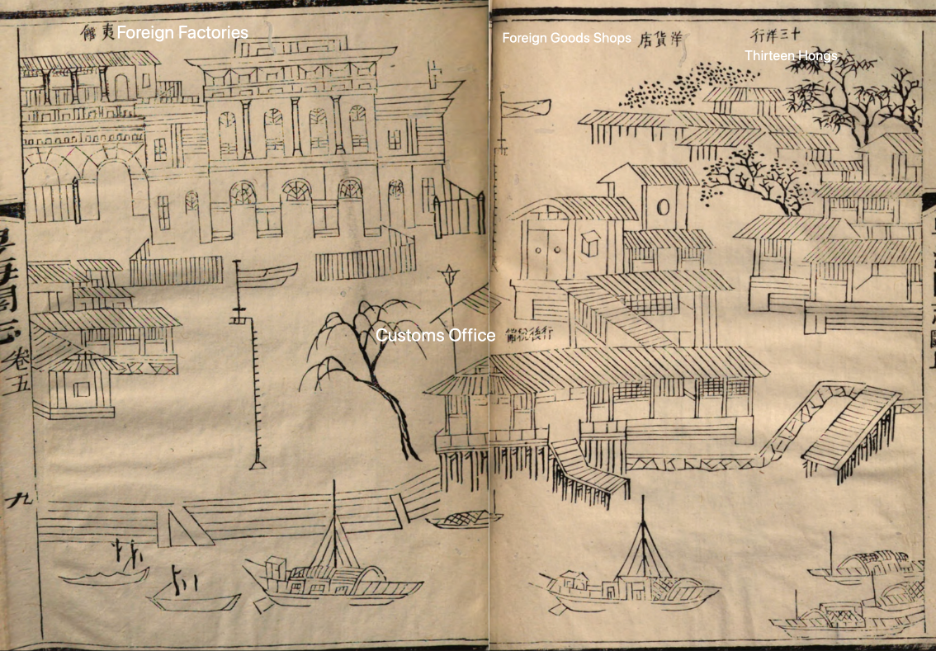 夷館
Foreign Factories
Foreign Goods Shops
洋貨店
十三洋行
Thirteen Hongs
Customs Office
卷五
九